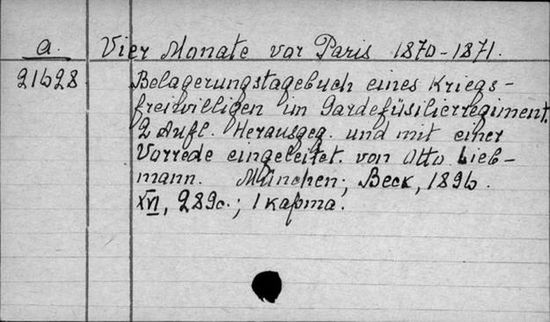 a. Vier Monate vor Paris 1870-1871.
21628 Belagerungstagebuch eines Kriegs-
freiwilligen im Gardefüsilierregiment.
2 Aufl. Herausgeg. und mit einer
Vorrede eingeleitet. von Otto Lieb-
mann. München; Beck, 1896.
XVI, 289c.; 1 карта.